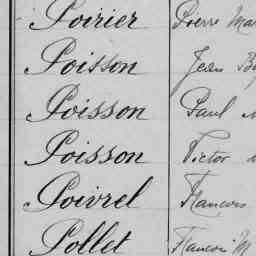 Poirier Pierre Ma
Poisson Jean B
Poisson Paul
Poisson Victor
Poivrel Francois
Pollet Francois M